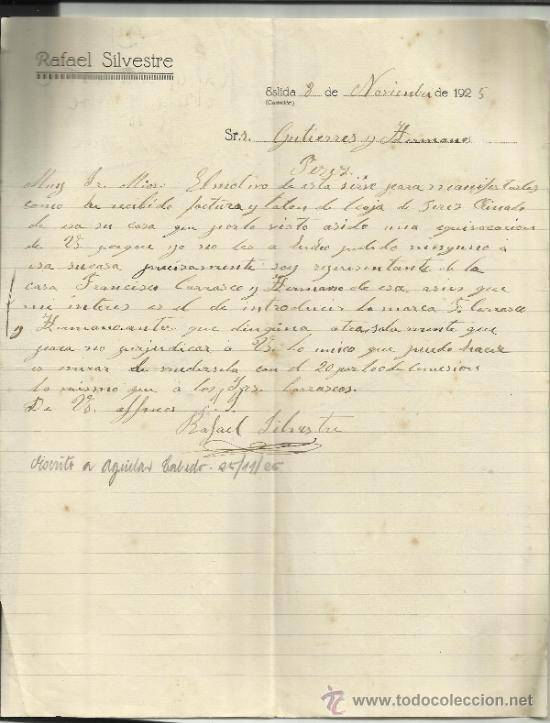 Rafael Silvestre
Eslida 8 de Noviembre de 1925
(Castellón)
Sr.s. Gutierres y Hermano
Jerez.
Muy Sr. Mios: El motivo de esta sirve para manifestarles
como he recibido factura y talon de 1 caja de Jerez
de esa su casa que por lo visto a sido una equivocacion
de V. porque yo no les a pedido ninguno á
esa su casa precisamente soy representante de la
casa Francisco Carrasco y Hermano de esa, asies que
mi interes es el de introducir la marca F. Carrasco
y Hermano antes que dinguna otra, solamente que
para no perjudicar á V. lo unico que puedo hacer
es mirar de con el 20 por % de Comision
lo mismo que á los Srs. Carrascos.
De V. affmos s.s.
Rafael Silvestre
Escrito a Aguilar 25/11/25
www.todocoleccion.net